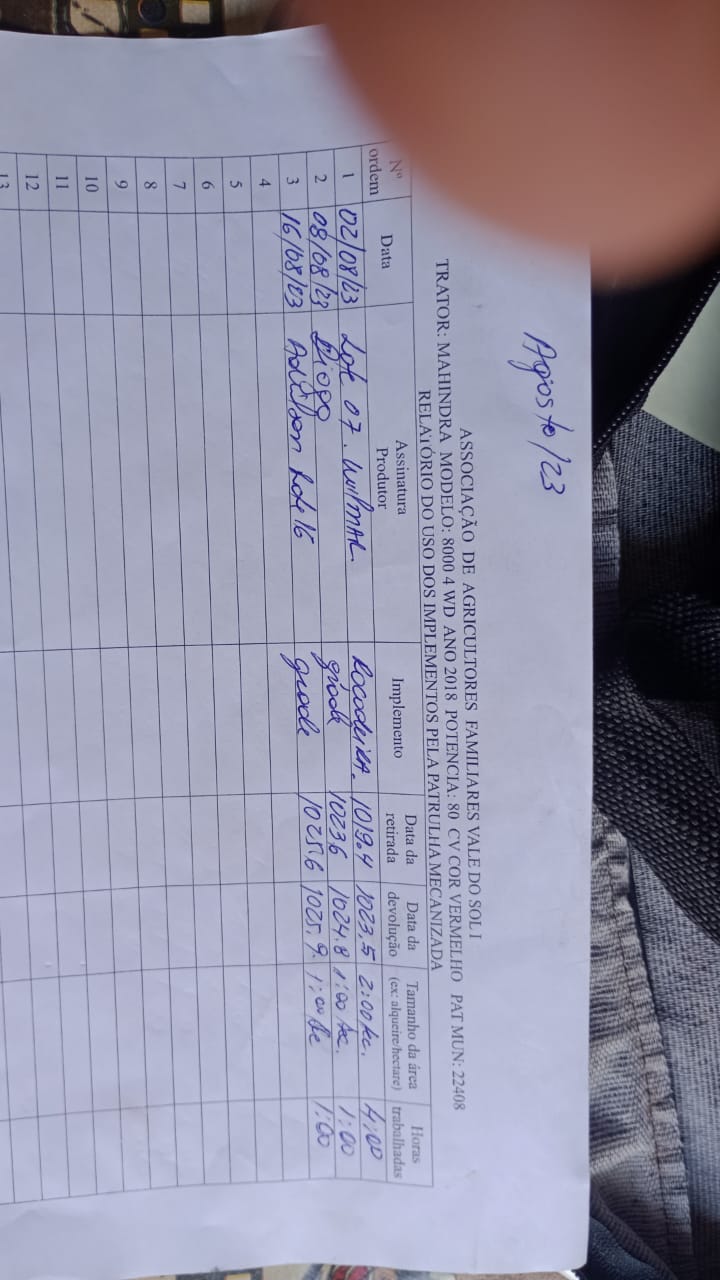 Agosto/23
ASSOCIAÇÃO DE AGRICULTORES FAMILIARES VALE DO SOL I
TRATOR: MAHINDRA MODELO: 8000 4 WD ANO 2018 POTENCIA: 80 CV COR VERMELHO PAT MUN: 22408
RELATÓRIO DO USO DOS IMPLEMENTOS PELA PATRULHA MECANIZADA
Nº ordem Data Assinatura Produtor Implemento Data da retirada Data da devolução Tamanho da área (ex: alqueire/hectare) Horas trabalhadas
1 02/08/23 Lote 07. Wilmar. Rocadeira. 1019.4 1023.5 2:00 4:00
2 08/08/23 Diogo grade 10236 1024.8 1:00 1:00
3 16/08/23 Adilson Lote 16 grade 1025.6 1025.9. 1:00 1:00
4
5
6
7
8
9
10
11
12
13